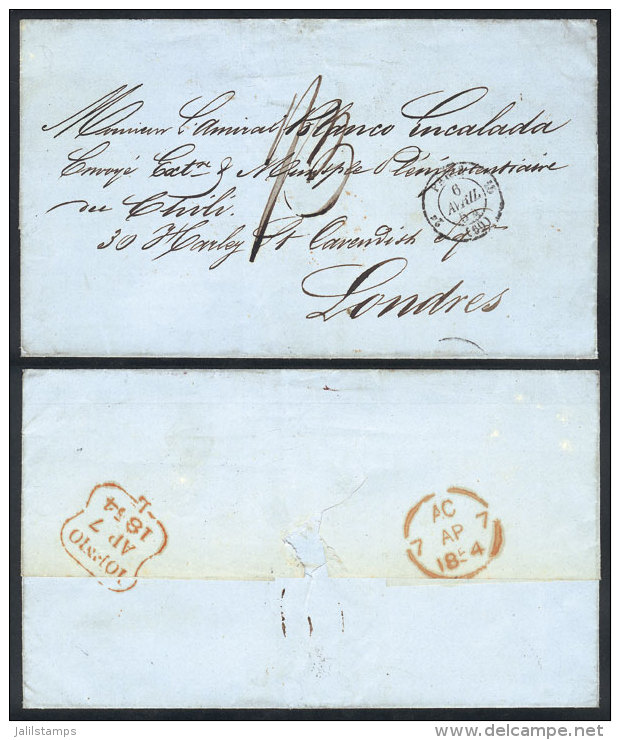 Monsieur l'Amiral Blanco Encalada
Envoyé Extre & Ministre Plénipotentiaire
du Chili.
30 Harley St Cavendish Sqre
Londres
6
AVRIL
54
(60)
10
AP 7
1854
AC
7 AP 7
1854
jalilstamps
delcampe.net